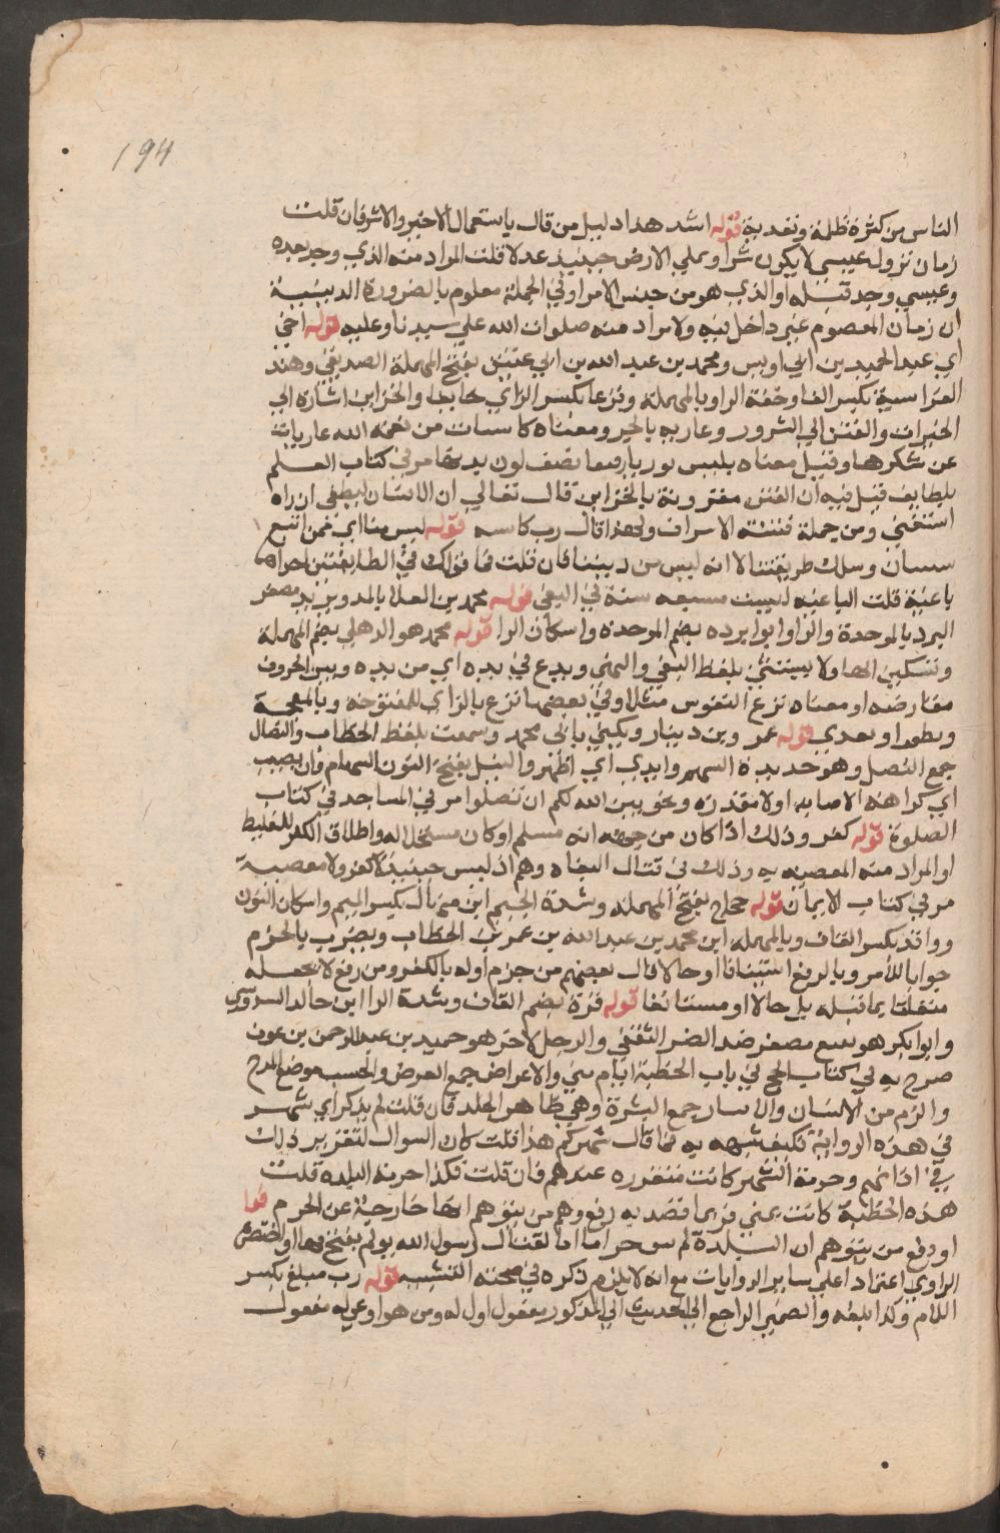 194
الناس من كثرة ظلمه وتعديه قوله اشد هذا دليل من قال باستعمال الاخير والاشر فان قلت
زمان نزول عيسي لا يكون شرا ويملي الارض حينيذ عدلا قلت المراد منه الذي وجد بعده
وعيسي وجد قبله او الذي هو من جنس الامرا وفي الجملة معلوم بالضرورة الدينية
ان زمان المعصوم غير داخل فيه ولا مراد منه صلوات الله علي سيدنا وعليه قوله اخي
اي عبد الحميد بن ابي اويس ومحمد بن عبد الله بن ابي عتيق بفتح المهملة الصديقي وهند
الفراسية بكسر الفا وخفة الرا وبالمهملة وفزعا بكسر الزاي خايفا والخزاين اشارة الي
الخيرات والفتن الي الشرور وعارية بالجر ومعناه كاسيات من نعمة الله عاريات
عن شكرها وقيل معناه يلبس ثوبا رقيقا تصف لون بدنها مر في كتاب العلم
بلطايف قيل فيه ان الفتن مقرونة بالخزاين قال تعالي ان الانسان ليطغي ان راه
استغني ومن جملة فتنته الاسراف ولهذا قال رب كاسية قوله ليس منا اي ممن اتبع
سنتنا وسلك طريقتنا لا انه ليس من ديننا فان قلت فما قولك في الطايفتين احداهما
باغية قلت الباغية ليست متبعه سنة في البغي قوله محمد بن العلا بالمد وبريد مصغر
البرد بالموحدة والرا وابو بردة بضم الموحدة واسكان الرا قوله محمد هو الذهلي بضم المهملة
وتسكين الها ولا يستثني بلفظ النفي والنهي وينزع في يده اي من يده وبين الحروف
مقارضه او معناه نزع القوس مثلا وفي بعضها نزع بالزاي المفتوحة وبالمعجمة
قوله عمرو بن دينار ويكني بابي محمد وسمعت بلفظ الخطاب والنصال
جمع النصل وهو حديدة السهم وابدي اي اظهر والنبل بفتح النون السهام وان يصيب
اي كراهة الاصابه او لا مقدرة ونحو يبين الله لكم ان تضلوا مر في المساجد في كتاب
الصلوة قوله كفر وذلك اذا كان من جهة انه مسلم او كان مستحلا له واطلاق الكفر للتغليظ
او المراد منه المعصية به وذلك في قتال البغاة وهم اذ ليس حينيذ لا كفر ولا معصية
مر في كتاب الايمان قوله حجاج بفتح المهملة وشدة الجيم ابن منهال بكسر الميم واسكان النون
وواقد بكسر القاف وبالمهملة ابن محمد بن عبد الله بن عمر بن الخطاب ويضرب بالجزم
جوابا للامر وبالرفع استينافا او حالا قال بعضهم من جزم اوله بالكفر ومن رفع لا يجعله
متعلقا بما قبله بل حالا او مستانفا قوله قرة بضم القاف وشدة الرا ابن خالد السدوسي
وابو بكر هو نفيع مصغر ضد الضر الثقفي والرجل الاخر هو حميد بن عبد الرحمن بن عوف
صرح به في كتاب الحج في باب الخطبة ايام مني والاعراض جمع العرض والحسب موضع المدح
والذم من الانسان والابشار جمع البشرة وهي ظاهر الجلد فان قلت لم يذكر اي شهر
في هذه الرواية فكيف شبهه به فما قال شهركم هذا قلت كان السوال لتقرير ذلك
في اذانهم وحرمة الشهر كانت متقررة عندهم فان قلت فكذا حرمة البلدة قلت
هذه الخطبة كانت بمني فربما قصد به رفع وهم من يتوهم انها خارجية عن الحرم فما
او دفع من يتوهم ان البلدة لم تبق حراما لقتال رسول الله يوم فتحها او اختصر
الراوي اعتمادا علي ساير الروايات مع انه لا يلزم ذكره في صحة التشبيه قوله رب مبلغ بكسر
اللام وكذا يبلغه والضمير الراجع الي الحديث الي المذكور مفعول اول له ومن هو اوعي له مفعول